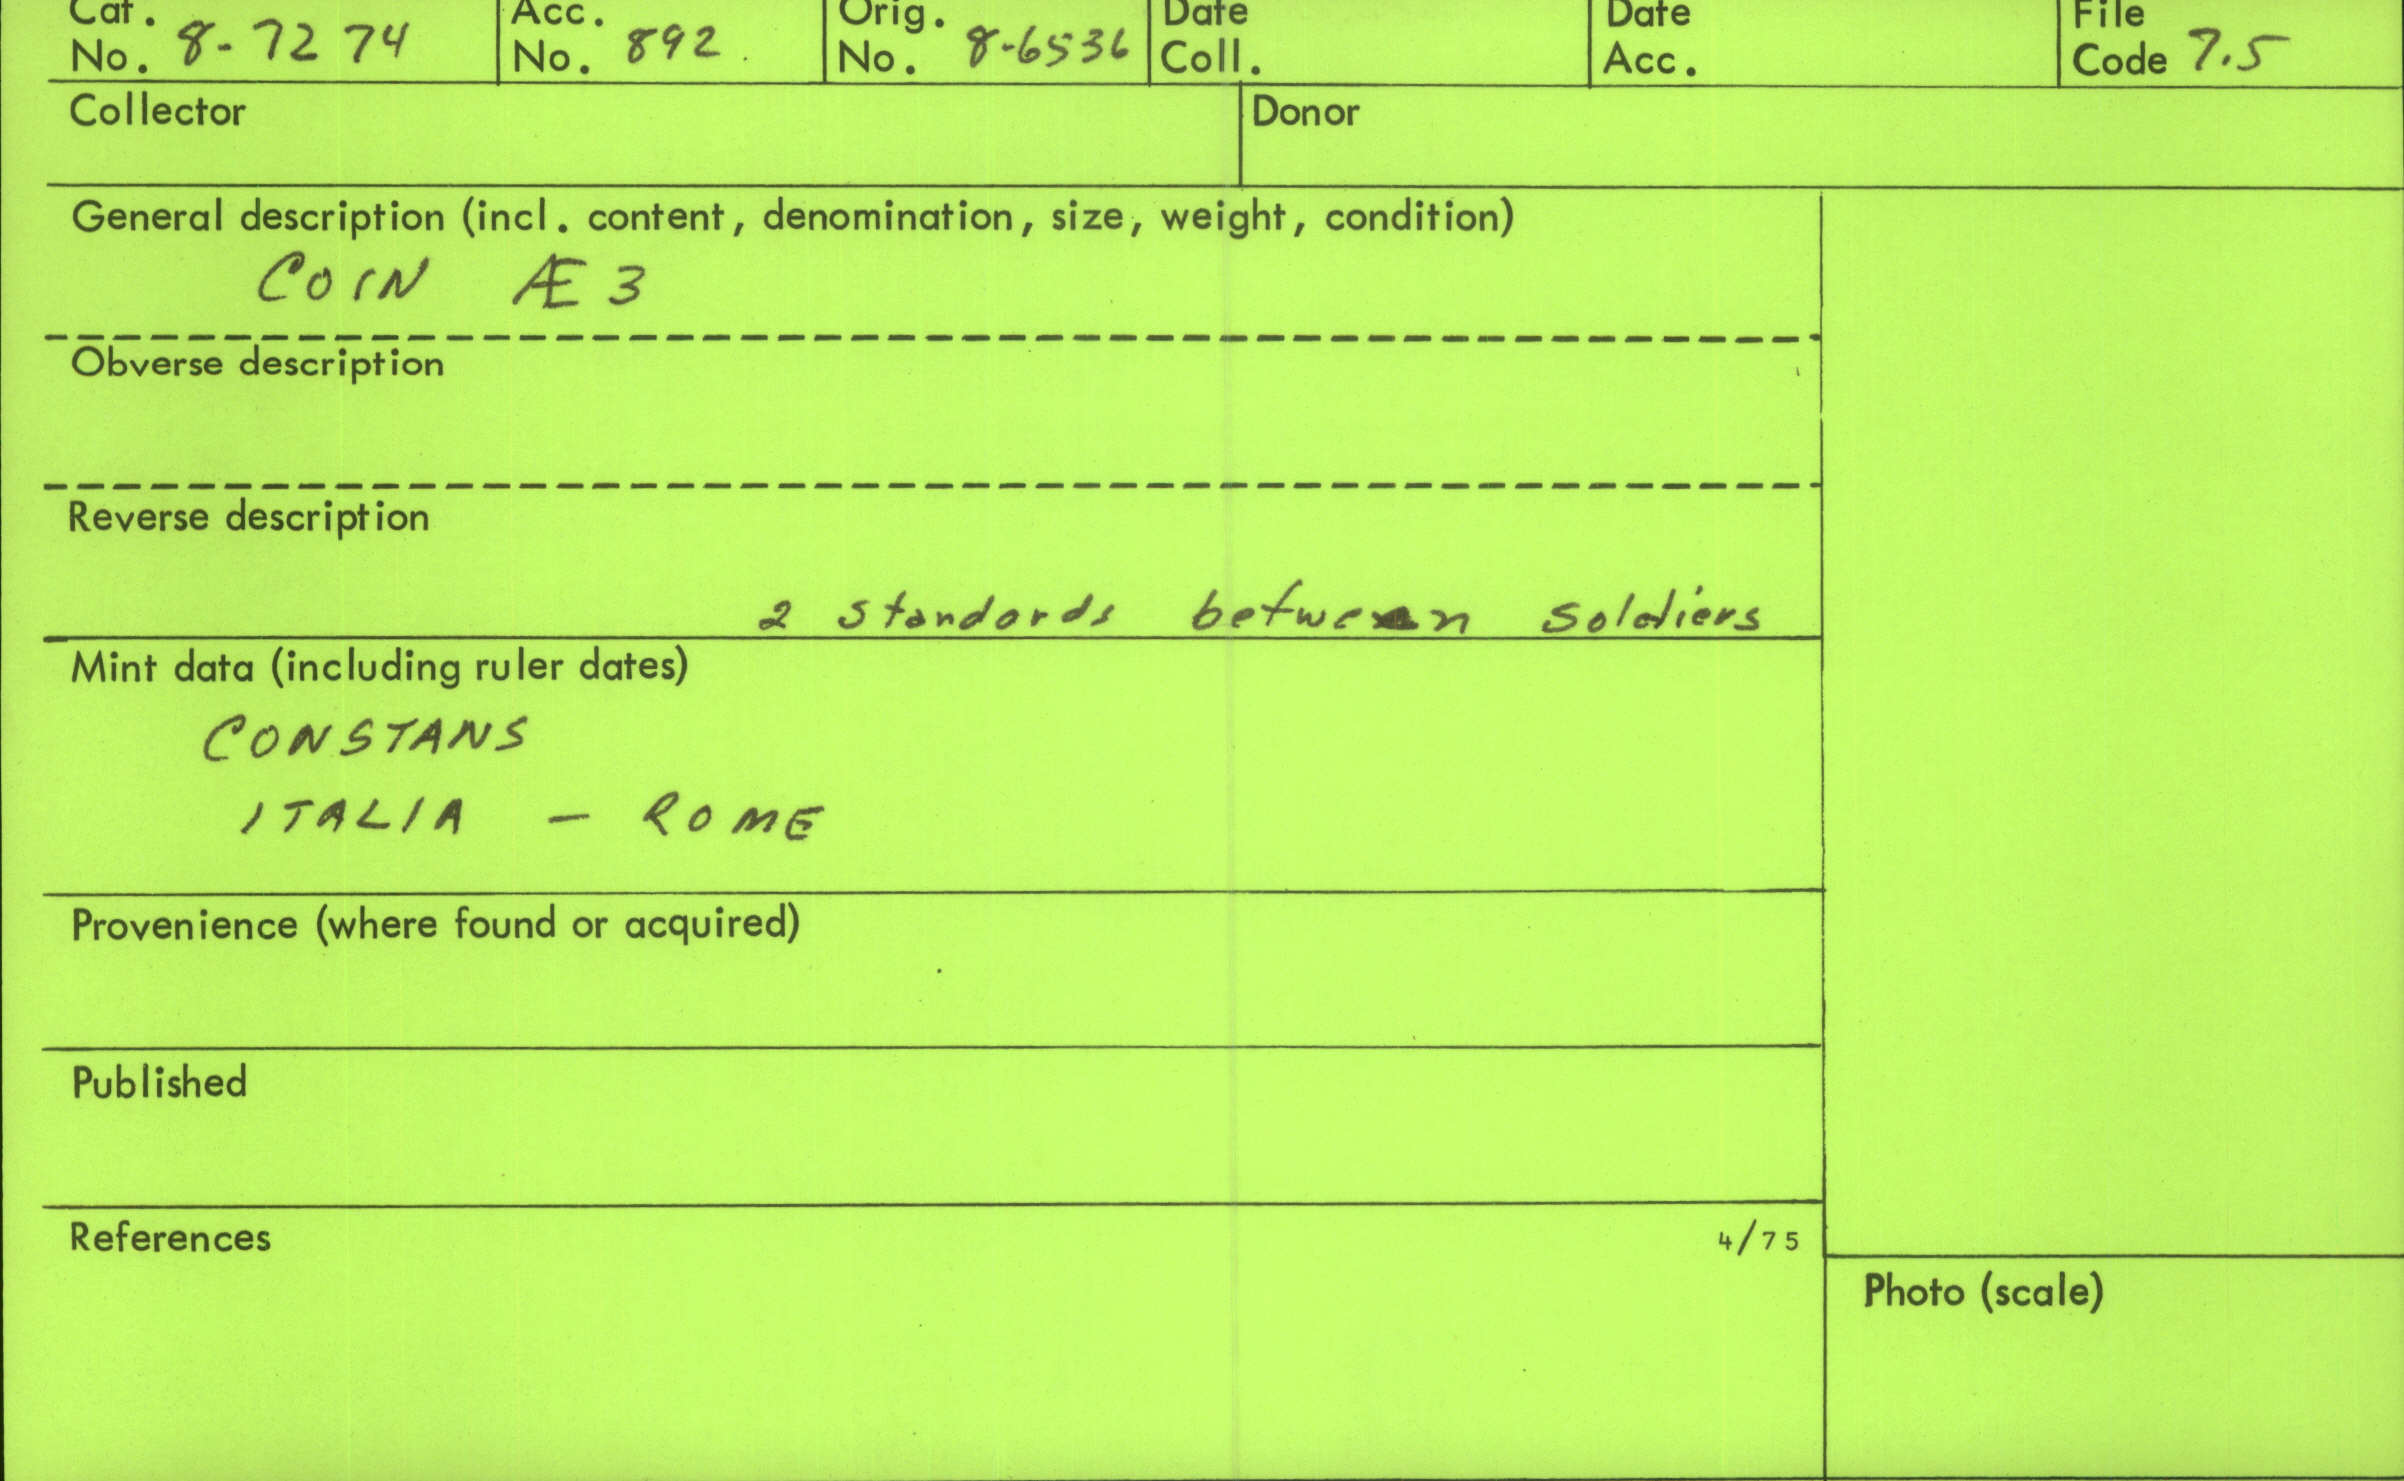 Cat. No. 8-7274 Acc. No. 892 Orig. No. 8-6536 Date Coll. Date Acc. File Code 7.5
Collector Donor
General description (incl. content, denomination, size, weight, condition)
COIN Æ 3
Obverse description
Reverse description
2 standards between soldiers
Mint data (including ruler dates)
CONSTANS
ITALIA - ROME
Provenience (where found or acquired)
Published
References 4/75
Photo (scale)